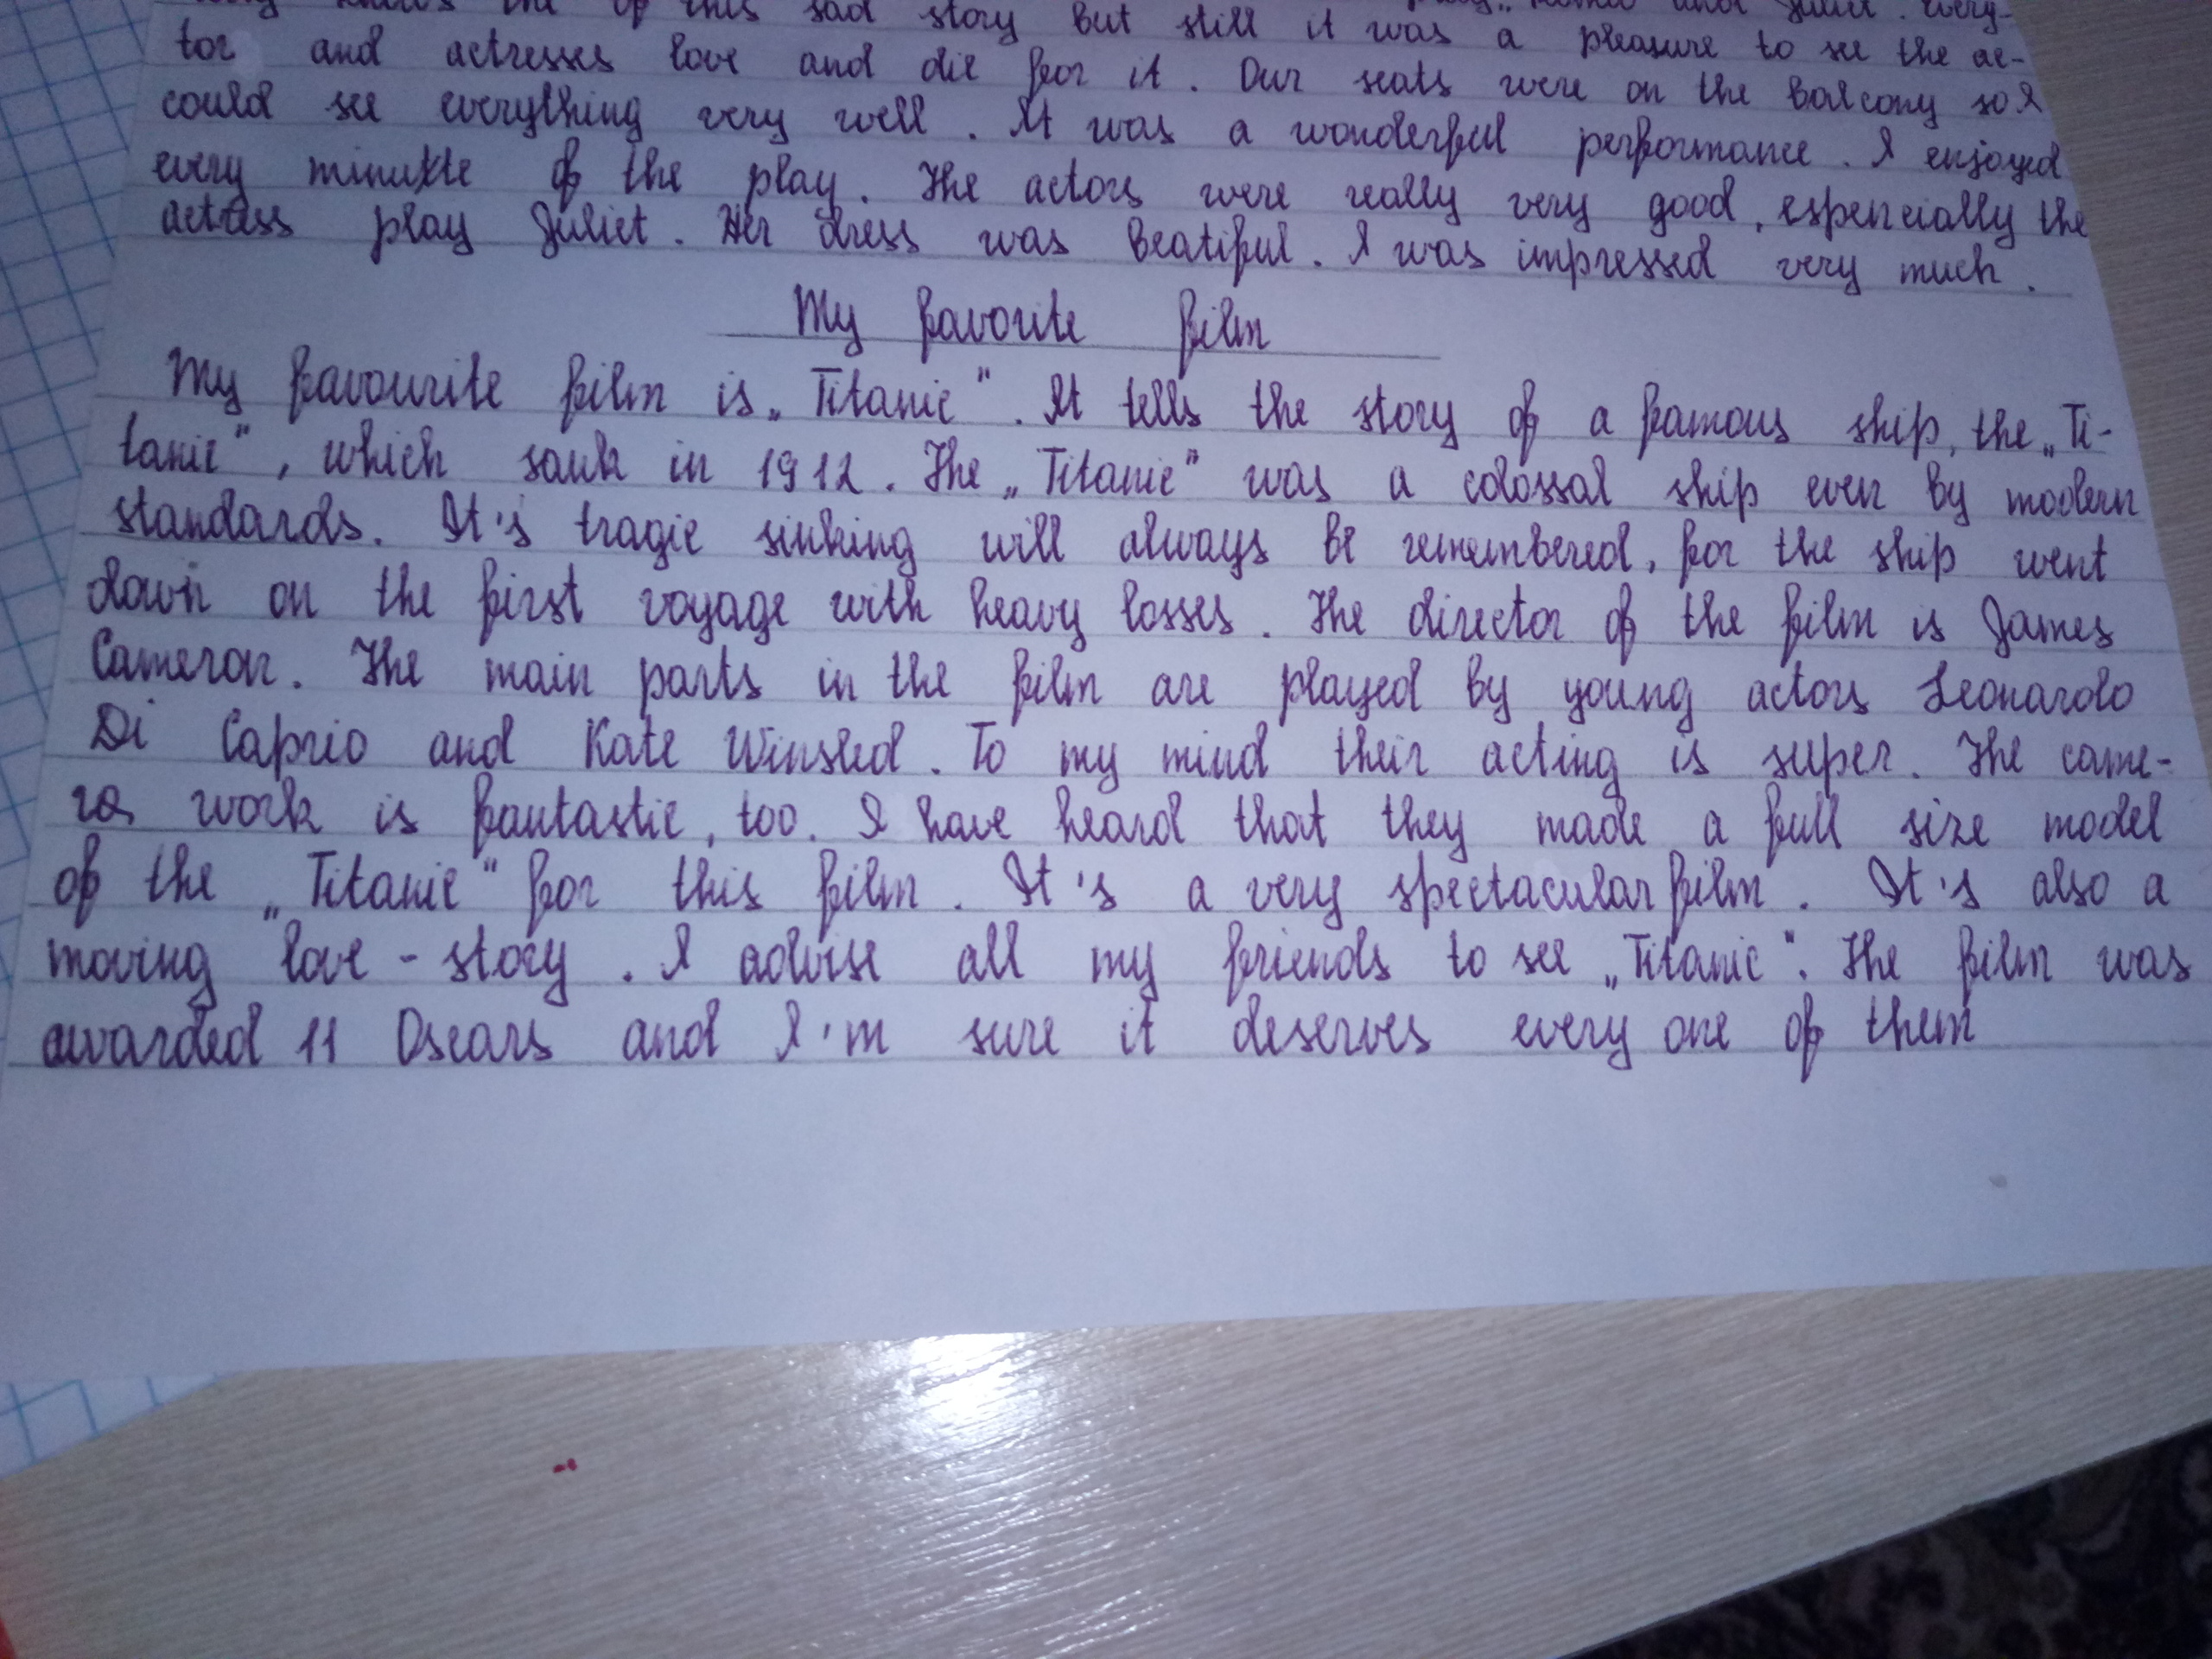 knows the of this sad story but still it was a pleasure to see the ac-
tor and actresses love and die for it. Our seats were on the balcony so I
could see everything very well. It was a wonderful performance. I enjoyed
every minutte of the play. The actors were really very good, espencially the
actress play Juliet. Her dress was beatiful. I was impressed very much.
My favorite film
My favourite film is „Titanic". It tells the story of a famous ship, the „Ti-
tanic", which sank in 1912. The „Titanic" was a colossal ship even by modern
standards. It's tragic sinking will always be remembered, for the ship went
down on the first voyage with heavy losses. The director of the film is James
Cameron. The main parts in the film are played by young actors Leonardo
Di Caprio and Kate Winsled. To my mind their acting is super. The came-
ra work is fantastic, too. I have heard that they made a full size model
of the „Titanic" for this film. It's a very spectacular film. It's also a
moving love - story. I advise all my friends to see „Titanic". The film was
awarded 11 Oscars and I'm sure it deserves every one of them